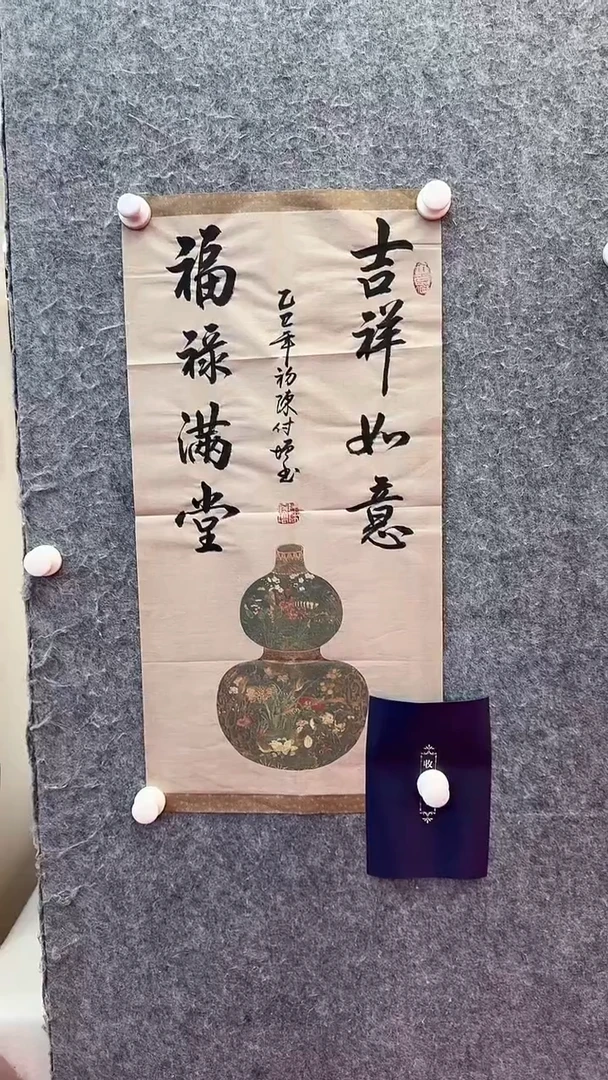 吉祥如意
乙巳年初陳付
福禄满堂
收